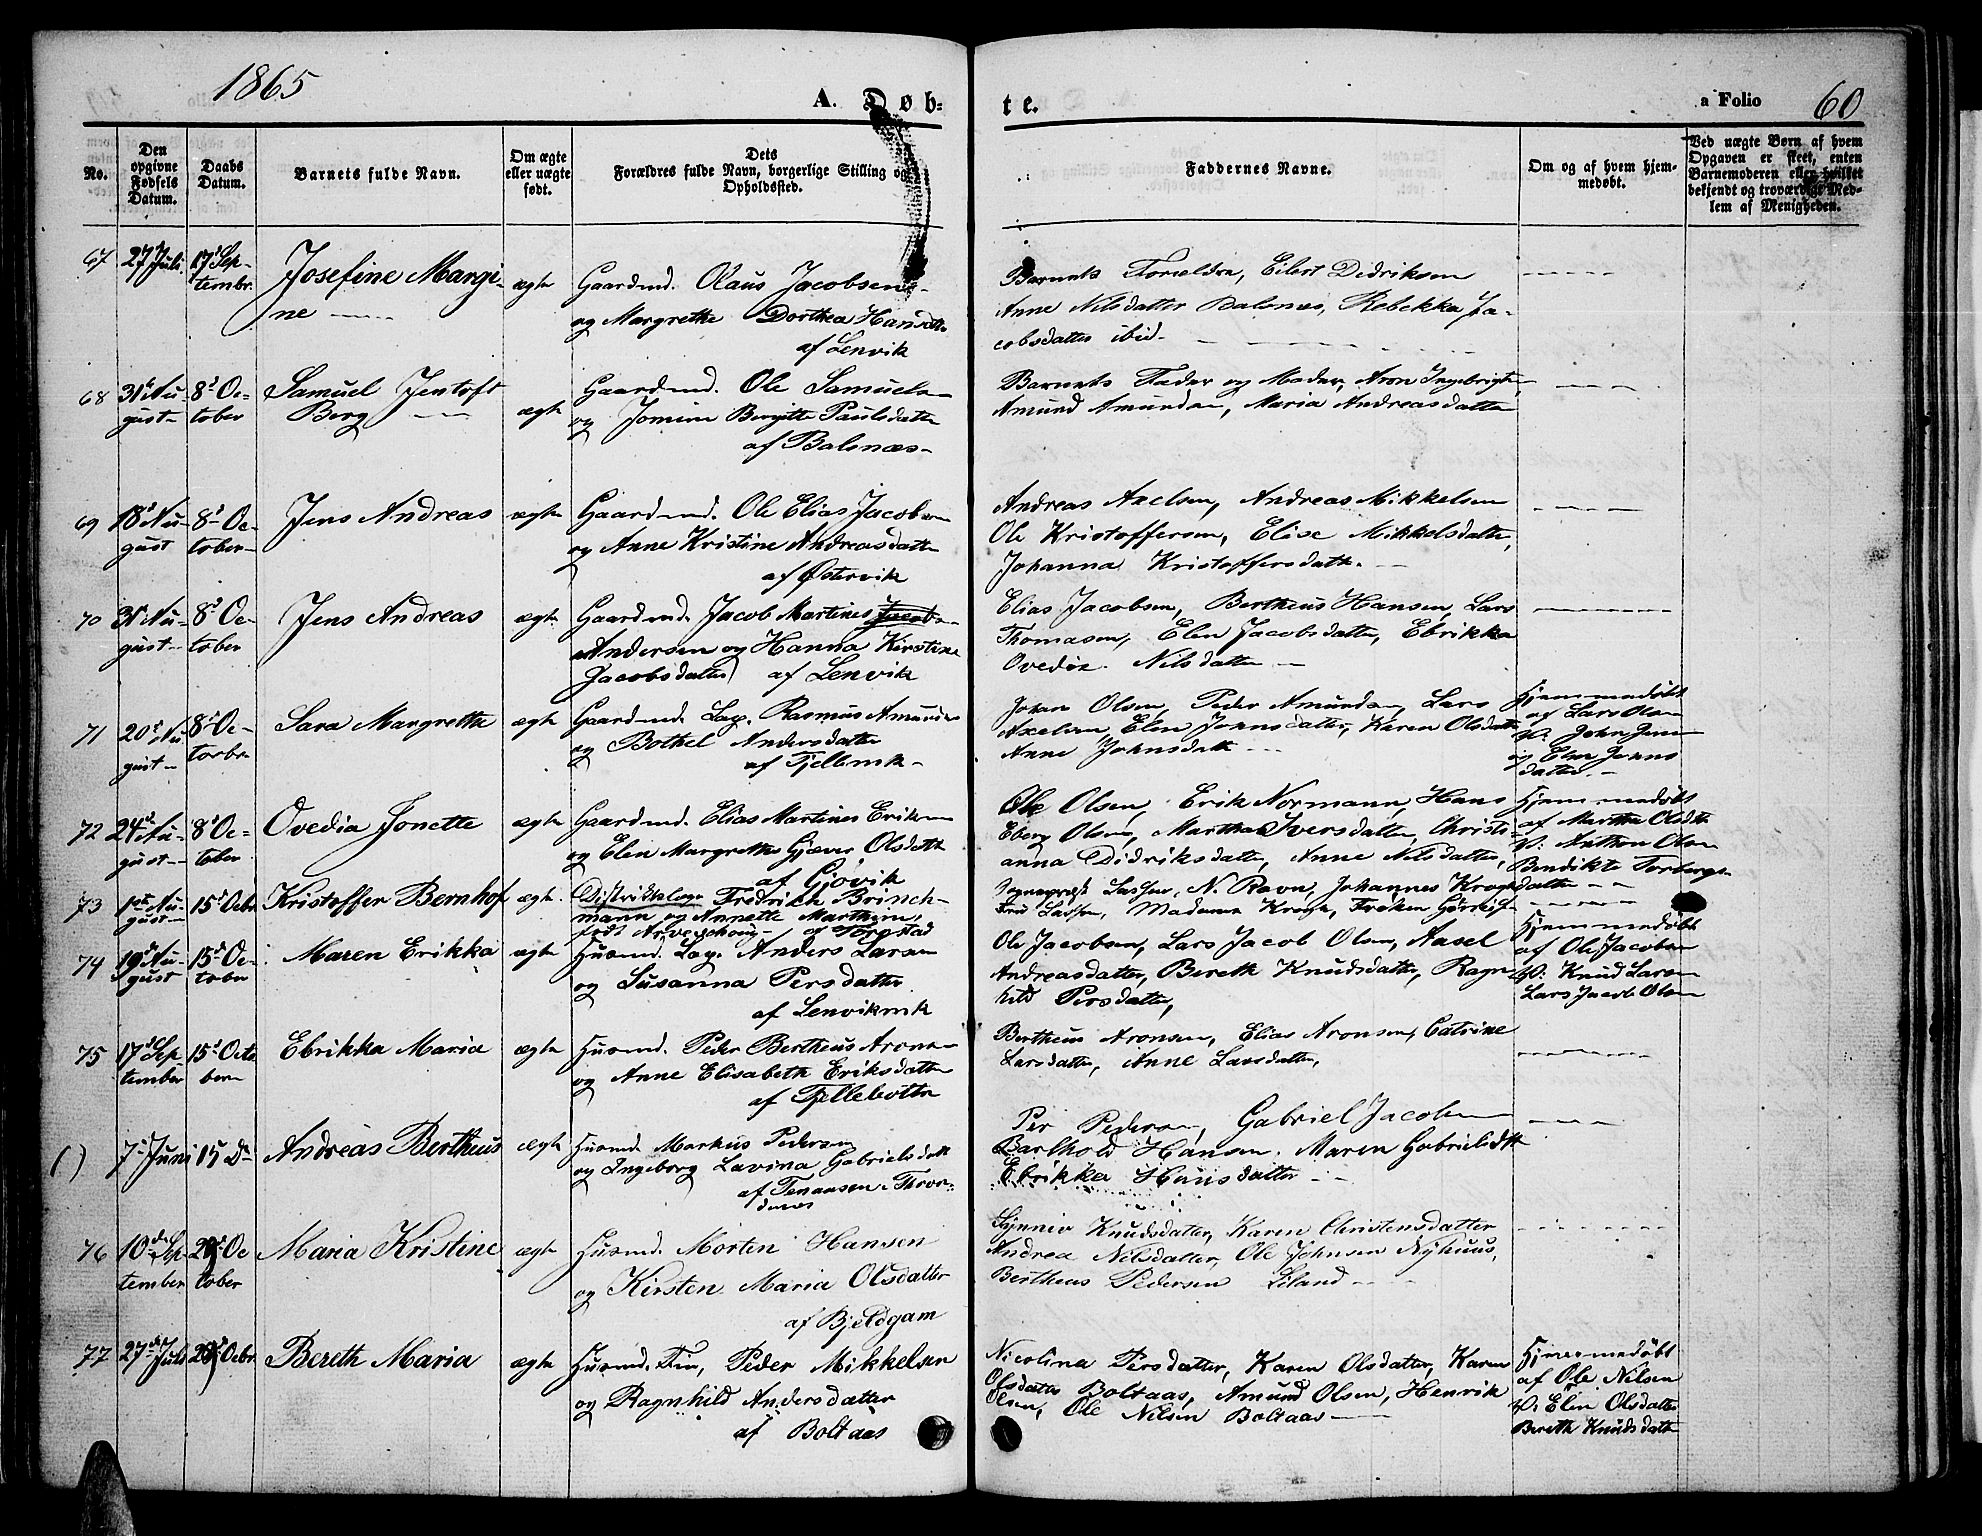 1865
A. Døb-
te.
a Folio 60
No.
Den opgivne Fødsels Datum.
Daabs Datum.
Barnets fulde Navn.
Om ægte eller uægte født.
Dets
Forældres fulde Navn, borgerlige Stilling og
Opholdssted.
Faddernes Navne.
Om og af hvem hjem-
medøbt.
Ved uægte Børn af hvem
Opgaven er skeet, enten
Barnemoderen eller hvilket
bekjendt og troværdigt Med-
lem af Menigheden.
67 27 Juli 17 Sep- Josefine Margi- ægte Gaardmd. Olaus Jacobsen
tembr. ne og Margrethe Dorthea Hansdttr
af Lenvik
Barnets Forældre, Eilert Didriksen
Anne Nilsdatter Balsnes, Rebekka Ja-
cobsdatter ibid.
68 31 Au- 8 Oc- Samuel Jentoft ægte Gaardmd. Ole Samuels
gust tober Berg og Jomine Birgitte Paulsdatter
af Balsnæs
Barnets Fader og Moder, Aron Ingebrigts
Amund Amundsen, Maria Andreasdatter
69 18 Au- 8 Oc- Jens Andreas ægte Gaardmd. Ole Elias Jacobsen
gust tober og Anne Kristine Andreasdatter
af Østervik
Andreas Axelsen, Andreas Mikkelsen
Ole Kristoffersen, Elise Mikkelsdatter,
Johanna Kristoffersdatter.
70 31 Au- 8 Oc- Jens Andreas ægte Gaardmd. Jacob Martines Jacobs
gust tober Andersen og Hanna Kirstine
Jacobsdatter af Lenvik
Elias Jacobsen, Bertheus Hansen, Lars
Thomasen, Elen Jacobsdatter, Ebrikka
Ovedia Nilsdatter
71 20 Au- 8 Oc- Sara Margrethe ægte Gaardmd. Lap. Rasmus Amundsen
gust tober og Bothel Andersdatter
af Fjellvik
Johan Olsen, Peder Amundsen, Lars
Axelsen, Elen Johnsdatter, Karen Olsdatter
Anne Johnsdatter
Hjemmedøbt
af Lars Olsen
V. John Jens
og Elen Jonns
datter.
72 24 Au- 8 Oc- Ovedia Jonette ægte Gaardmd. Elias Martines Eriksen
gust tober og Elen Margrethe Gjæver Olsdatter
af Gjøvik
Ole Olsen, Erik Normann, Hans
Eberg Olsen, Martha Iversdatter, Christi-
anna Didriksdatter, Anne Nilsdatter,
Hjemmedøbt
af Martha Olsdtr
V. Anthon Olsen
Bendikte Torbergs
datter
73 1st Au- 15 Octbr Kristoffer Bernhof ægte. Distriktslæge Fredrich Brinch-
gust mann og Annette Marthine,
født Arveschoug af Torestad
Sogneprest Lassen, N. Ravn, Johannes Krogh
Fru Lassen, Madame Krogh, Frøken Gørrisf
74 19 Au- 15 Oc- Maren Erikka ægte Husmd. Lap. Anders Larsen
gust tober og Susanna Persdatter
af Lenvikmk
Ole Jacobsen, Lars Jacob Olsen, Aasel
Andreasdatter, Bereth Knudsdatter, Ragn
hild Persdatter,
Hjemmedøbt
af Ole Jacobsen
V: Knud Larsen
Lars Jacob Olsen
75 17 Sep 15 Octo Ebrikka Maria ægte Husmd. Peder Bertheus Arons
tember bern og Anne Elisabeth Eriksdatter
af Fjellebotten
Bertheus Aronsen, Elias Aronsen, Catrine
Larsdatter, Anne Larsdatter,
() 7 Juni 15 Do Andreas Bertheus ægte Husmd. Markus Pedersen
og Ingeborg Lavina Gabrielsdatt
Per Pedersen, Gabriel Jacobsen
Barthold Hansen, Maren Gabrielsdtt
Ebrikka Hansdatter
76 10 Sep 29 Oc Maria Kristine ægte Husmd. Morten Hansen
tember tober og Kirsten Maria Olsdatter
af Bjeldgam
Synnia Knudsdatter, Karen Christensdatter
Andrea Nilsdatter, Ole Johnsen Nyhuus,
Bertheus Pedersen Leland
77 27 Juli 29 Octbr Bereth Maria ægte Husmd. Fin, Peder Mikkelsen
og Ragnhild Andersdatter
af Boltaas
Nicolina Persdatter, Karen Olsdatter, Karen
Olsdatter Boltaas, Amund Olsen, Henrik
Olsen, Ole Nilsen Boltaas
Hjemmedøbt
af Ole Nilsen
V. Elen Olsdatter
Bereth Knudsdatter